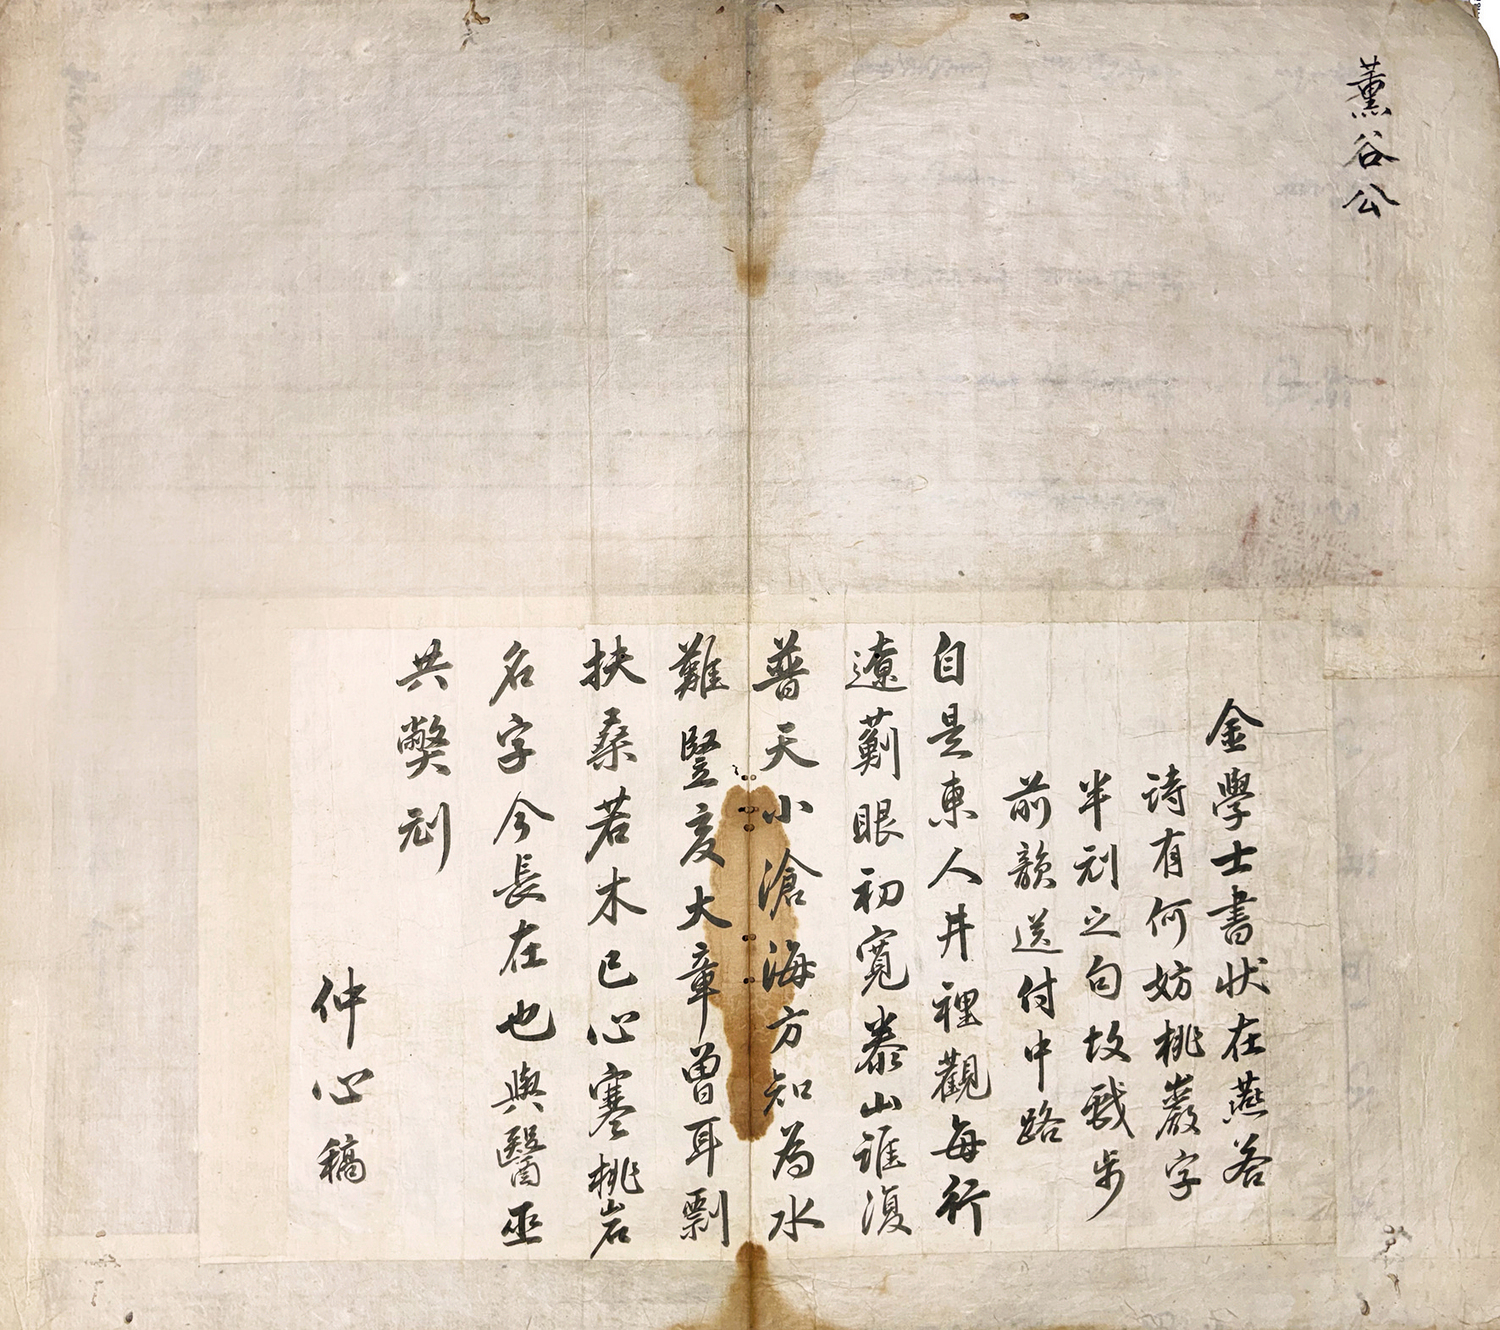 薰谷公
金學士書狀在燕答
詩有何妨桃巖字
半刓之句故戲步
前韻送付中路
自是東人井裡觀每行
遼薊眼初寬泰山誰復
普天小滄海方知為水
難豎亥大章曾耳剽
扶桑若木已心寒桃岩
名字今長在也與醫巫
共獘刓
仲心稿